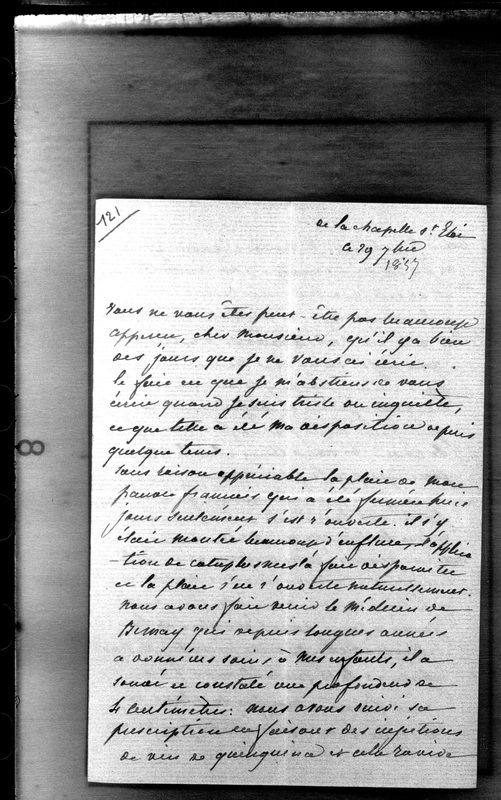 121
de la chapelle St. Eloi
le 29 7bre
1857
Vous ne vous êtes peut-être pas beaucoup
apperçu, cher Monsieur, qu'il y a bien
des jours que je ne vous ai écrit.
le fait est que je m'abstiens de vous
écrire quand je suis triste ou inquiète,
et que telle a été ma disposition depuis
quelque tems.
Sans raison appréciable la plaie de mon
pauvre françois qui a été fermée huit
jours seulement s'est r'ouverte. il s'y
était montré beaucoup d'enflure, l'applica
-tion de cataplasmes l'a fait disparaitre
et la plaie s'est r'ouverte naturellement.
nous avons fait venir le médecin de
Bernay qui depuis longues années
a donné des soins à mes enfants, il a
sondé et constaté une profondeur de
4 centimètres: nous avons suivi sa
prescription en faisant des injections
de vin de quinquina et cela